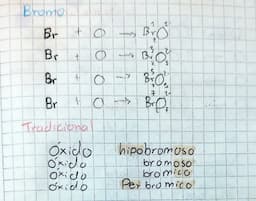 Bromo
Br + O → Br₂O
Br + O → Br₂O₃
Br + O → Br₂O₅
Br + O → Br₂O₇
Tradicional
Óxido hipobromoso
Óxido bromoso
Óxido bromico
Óxido Per bromico